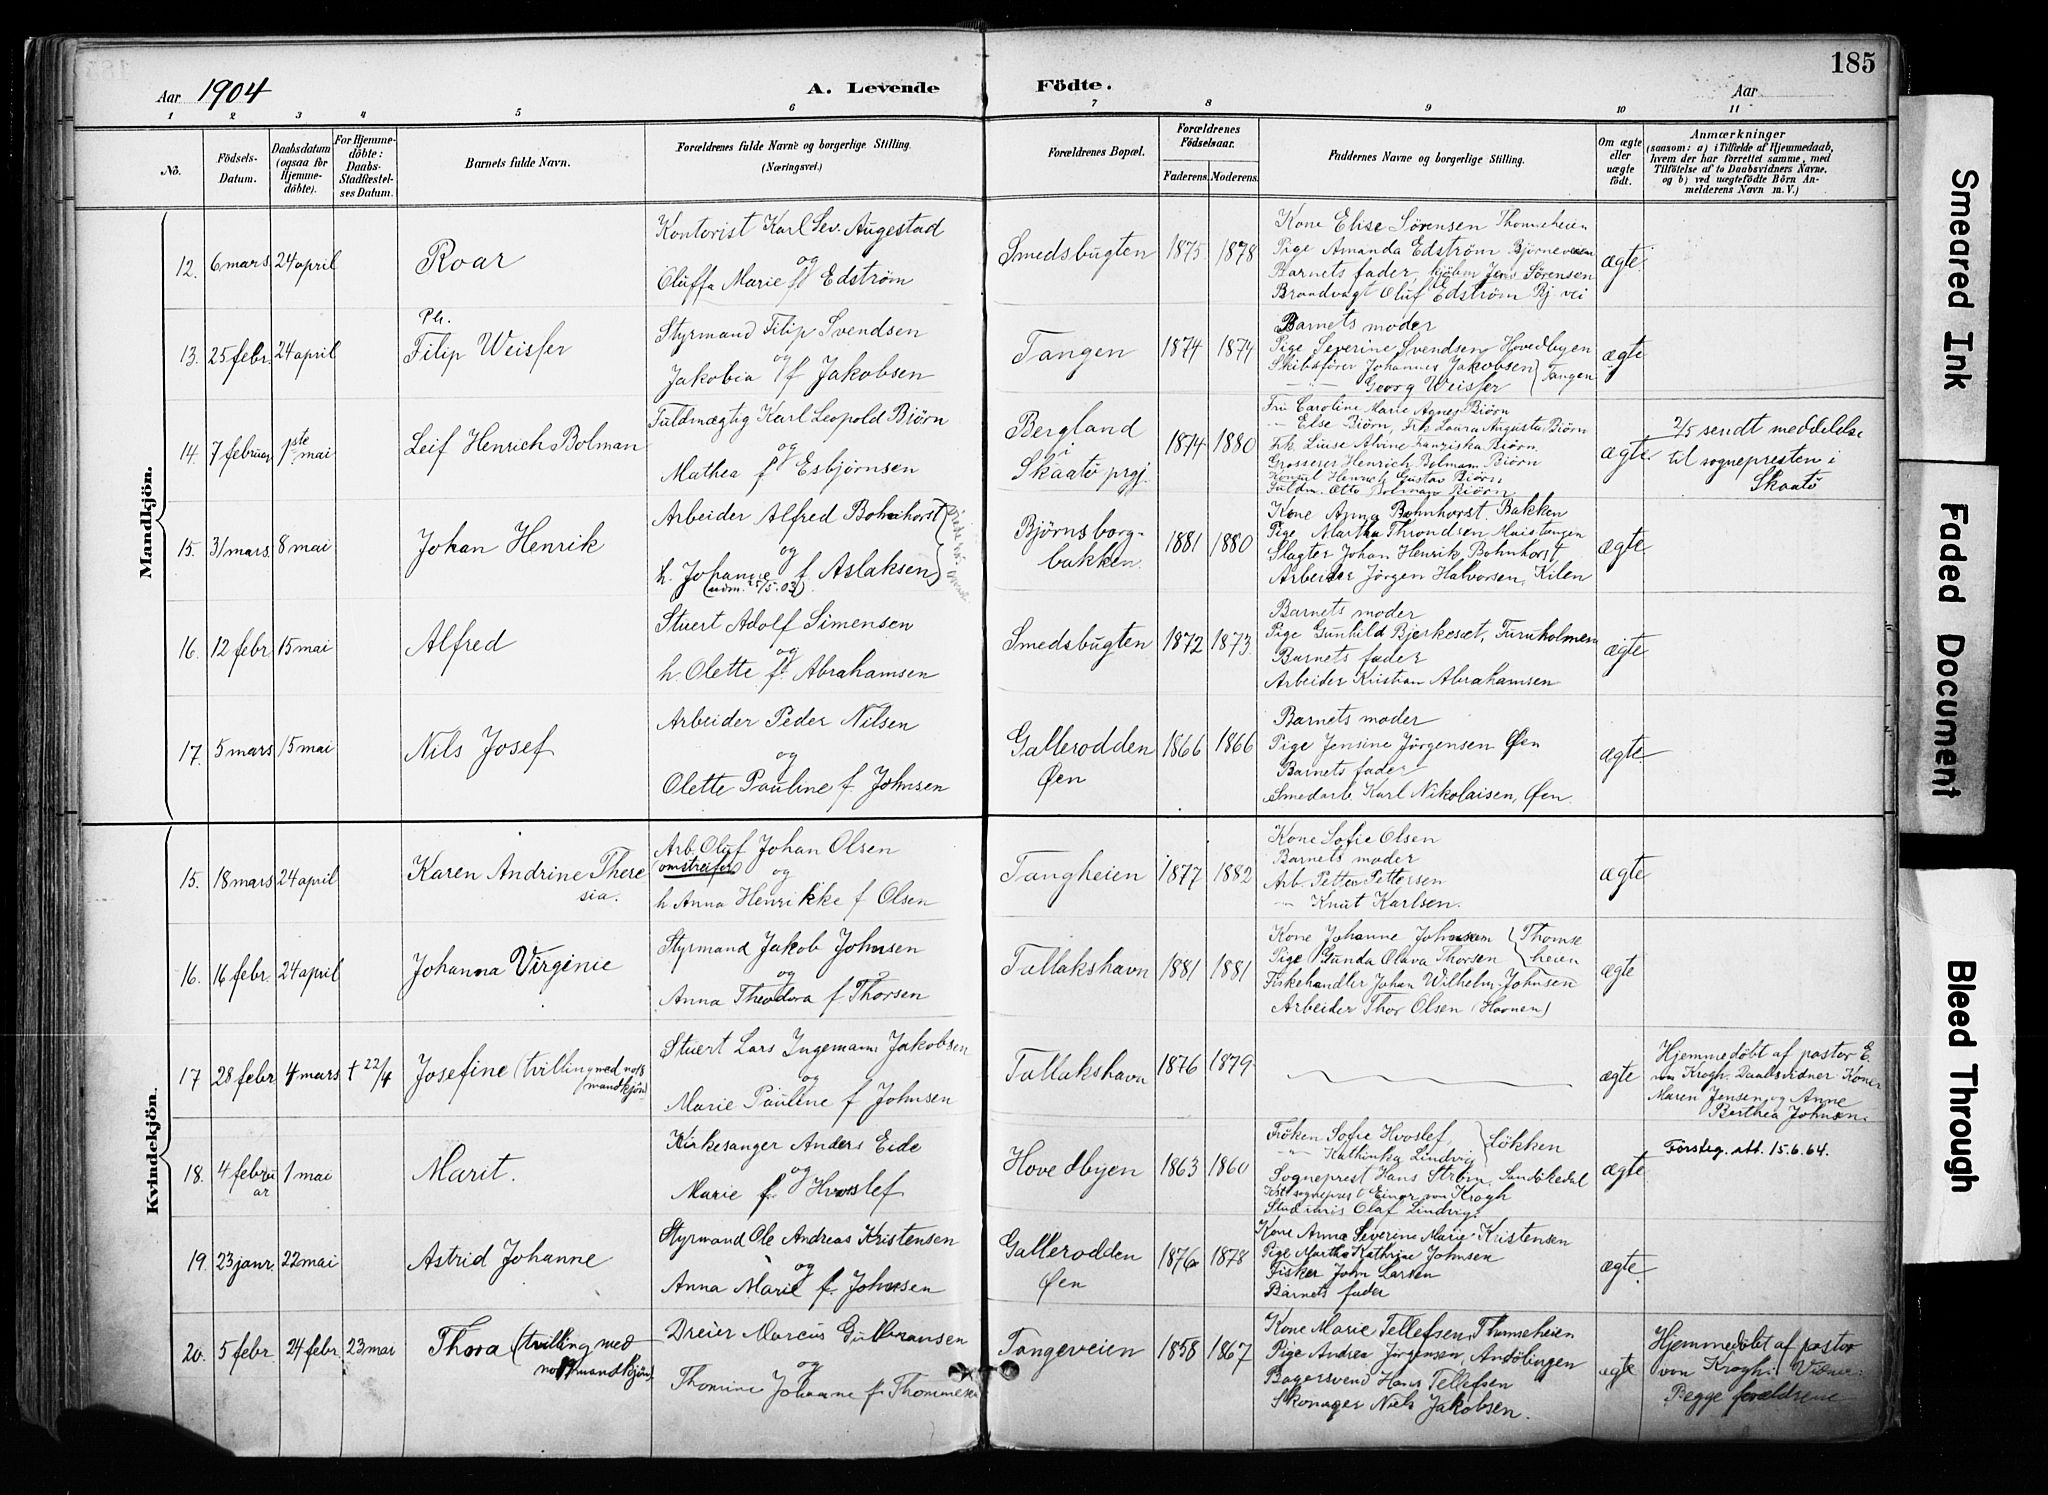 185
Aar 1904
A. Levende
Födte.
Aar
1 2 3 4 5 6 7 8 9 10 11
No.
Födsels-Datum.
Daabsdatum (ogsaa for Hjemme-döbte).
For Hjemme-döbte: Daabs-Stadfæstel-ses Datum.
Barnets fulde Navn.
Forældrenes fulde Navne og borgerlige Stilling. (Næringsvei.)
Forældrenes Bopæl.
Forældrenes Födselsaar.
Faderens. Moderens.
Faddernes Navne og borgerlige Stilling.
Om ægte eller uægte födt.
Anmærkninger
(saasom: a) i Tilfælde af Hjemmedaab,
hvem der har forrettet samme, med
Tilföielse af to Daabsvidners Navne.
og b) ved uægtefödte Börn An-
melderens Navn m. V.)
Mandkjön.
12. 6 mars 24 april
Roar
Kontorist Karl Sev. Augestad
og
Oluffa Marie f. Edström
Smedsbugten
1875 1878
Kone Elise Sörensen Thomeheien
Pige Amanda Edström Bjørneveien
Barnets fader, Jens Sörensen
Brandvagt Oluf Edström Bj vei
ægte.
13. 25 febr. 24 april
Ph.
Filip Weisser
Styrmand Filip Svendsen
og
Jakobia f Jakobsen
Tangen
1874 1874
Barnets moder
Pige Severine Svendsen Hovedbyen
Skibsfører Johannes Jakobsen
Georg Weisser
Tangen
ægte
14. 7 februar 1ste mai
Leif Henrich Bolman
Fuldmægtig Karl Leopold Biörn
og
Mathea f Esbjörnsen
Bergland
i
Skaatö prgj.
1874 1880
Fru Caroline Marie Agnes Biörn
— Else Biörn, Frk. Laura Augusta Biörn
Frk. Luise Alvine Franziska Biörn
Grosserer Henrich Bolman Biörn
Konsul Henrich Gustav Biörn
Fuldm. Otto Bolman Biörn
ægte.
2/5 sendt meddelelse
til sognepresten i
Skaatö
15. 31 mars 8 mai
Johan Henrik
Arbeider Alfred Bohnhorst
og
h. Johanne f. Aslaksen
Björnsborg-
bakken.
1881 1880
Kone Anna Bohnhorst. Bakken
Pige Martha Throndsen
Slagter Johan Henrik Bohnhorst
Arbeider Jörgen Halvorsen, Kilen
ægte
16. 12 febr 15 mai
Alfred
Stuert Adolf Simensen
og
h. Olette f. Abrahamsen
Smedsbugten
1872 1873
Barnets moder
Pige Gunhild Bjerkeset, Furuholmen
Barnets fader
Arbeider Kristian Abrahamsen
ægte
17. 5 mars 15 mai
Nils Josef
Arbeider Peder Nilsen
og
Olette Pauline f. Johnsen
Gallerodden
Øen
1866 1866
Barnets moder
Pige Jensine Jörgensen Øen
Barnets fader
Smedarb. Karl Nikolaisen, Øen.
ægte
Kvindekjön.
15. 18 mars 24 april
Karen Andrine There
sia.
Arb. Oluf Johan Olsen
omstreifer
og
h Anna Henrikke f Olsen
Tangheien
1877 1882
Kone Sofie Olsen
Barnets moder
Arb. Petter Pettersen
— Knut Karlsen.
ægte
16. 16 febr. 24 april
Johanna Virginie
Styrmand Jakob Johnsen
og
Anna Theodora f Thorsen
Tallakshavn
1881 1881
Kone Johanne Johnsen
Pige Gunda Olava Thorsen
Thomse
heien
Fiskehandler Johan Wilhelm Johnsen
Arbeider Thor Olsen (Havnen)
ægte
17 28 febr 4 mars + 22/4
Josefine (tvilling med no 8
mandkjön)
Stuert Lars Ingemann Jakobsen
og
Marie Pauline f Johnsen
Tallakshavn
1876 1879
ægte
Hjemmedöbt af pastor E.
von Krogh. Daabsvidner Koner
Maren Jensen og Anne
Berthea Johnsen.
18. 4 febru
ar
1 mai
Marit.
Kirkesanger Anders Eide
og
Marie f. Hvoslef
Hovedbyen
1863 1860
Fröken Sofie Hvoslef,
— Kathinka Lindvig
Lökken
Sogneprest Hans Ström, Sandökedal
sogneprest Einar von Krogh
Stud. iuris Olaf Lindvig.
ægte
Försteg. att. 15.6.64.
19. 23 janr. 22 mai
Astrid Johanne
Styrmand Ole Andreas Kristensen
og
Anna Marie f. Johnsen
Gallerodden
Øen
1876 1878
Kone Anna Severine Marie Kristensen
Pige Martha Kathrine Johnsen
Fisker John Larsen
Barnets fader
ægte
20. 5 febr. 24 febr. 23 mai
Thora (tvilling med
no 9 mandkjön).
Dreier Marcus Gulbransen
og
Thomine Johanne f. Thommesen
Tangeveien
1858 1867
Kone Marie Tellefsen, Thomseheien
Pige Andrea Jörgensen,
Bagersvend Hans Tellefsen
Skomager Niels Jakobsen.
ægte
Hjemmedöbt af pastor
von Krogh.
Begge forældrene
Smeared Ink
Faded Document
Bleed Through